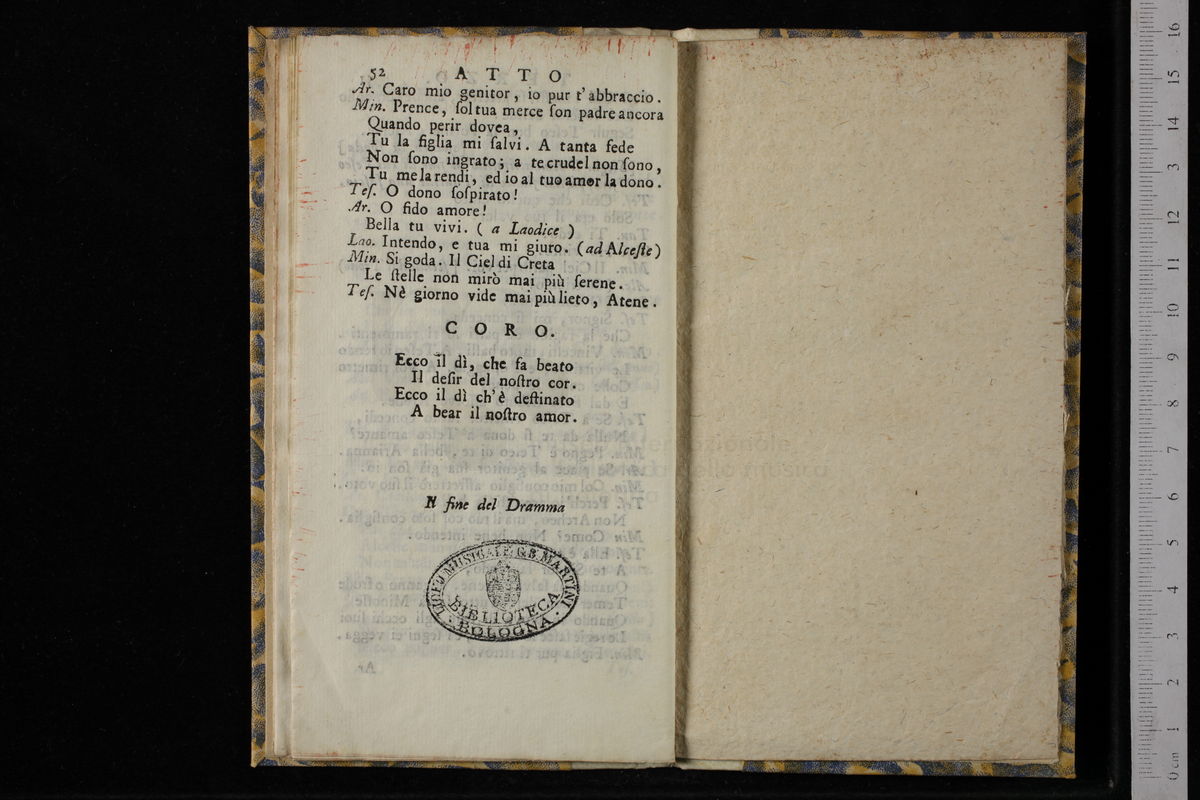 52 ATTO
Ar. Caro mio genitor, io pur t'abbraccio.
Min. Prence, ſol tua merce ſon padre ancora
Quando perir dovea,
Tu la figlia mi ſalvi. A tanta fede
Non ſono ingrato; a te crudel non ſono,
Tu me la rendi, ed io al tuo amor la dono.
Teſ. O dono ſoſpirato!
Ar. O fido amore!
Bella tu vivi. ( a Laodice )
Lao. Intendo, e tua mi giuro. (ad Alceſte)
Min. Si goda. Il Ciel di Creta
Le ſtelle non mirò mai più ſerene.
Teſ. Nè giorno vide mai più lieto, Atene.
CORO.
Ecco il dì, che fa beato
Il deſir del noſtro cor.
Ecco il dì ch'è deſtinato
A bear il noſtro amor.
Il fine del Dramma
LICEO MUSICALE G.B. MARTINI
BIBLIOTECA
BOLOGNA
0 cm 1 2 3 4 5 6 7 8 9 10 11 12 3 14 15 16